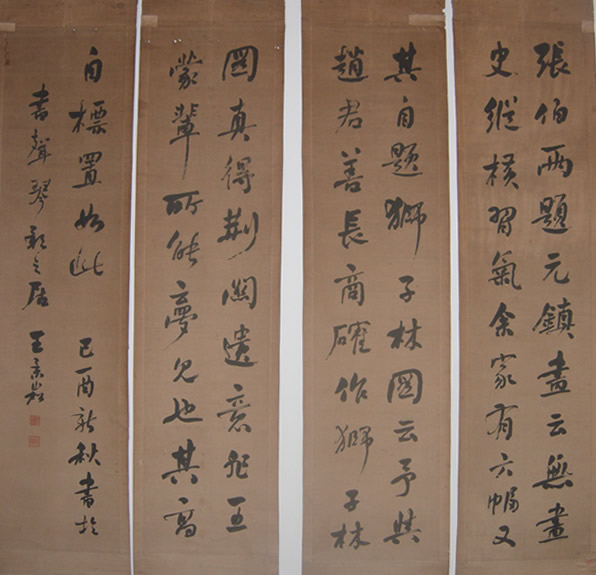 張伯雨題元鎮畫云無畫
史縱橫習氣余家有六幅又
其自題獅子林圖云予與
趙君善長商確作獅子林
圖真得荊關遺意非王
蒙輩所能夢見也其高
自標置如此 己酉新秋書於
書聲琴韻之居 王景